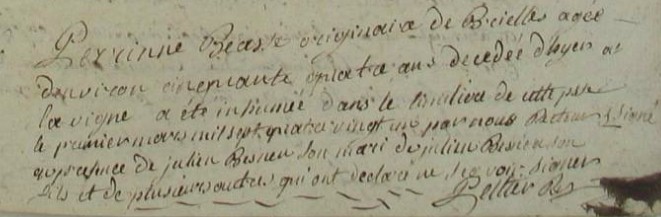 Perrinne Beasse originaire de Brielles agée
denviron cinquante quatre ans decedée d'hyer a
la vigne a été inhumée dans le Cimetiere de cette psse
le premier mars mil sept quatre vingt un par nous Recteur s signé
en presence de julien Besnier son mari de julien Besnier son
fils et de plusieurs autres qui ont declaré ne sçavoir signer
Peltier Rr